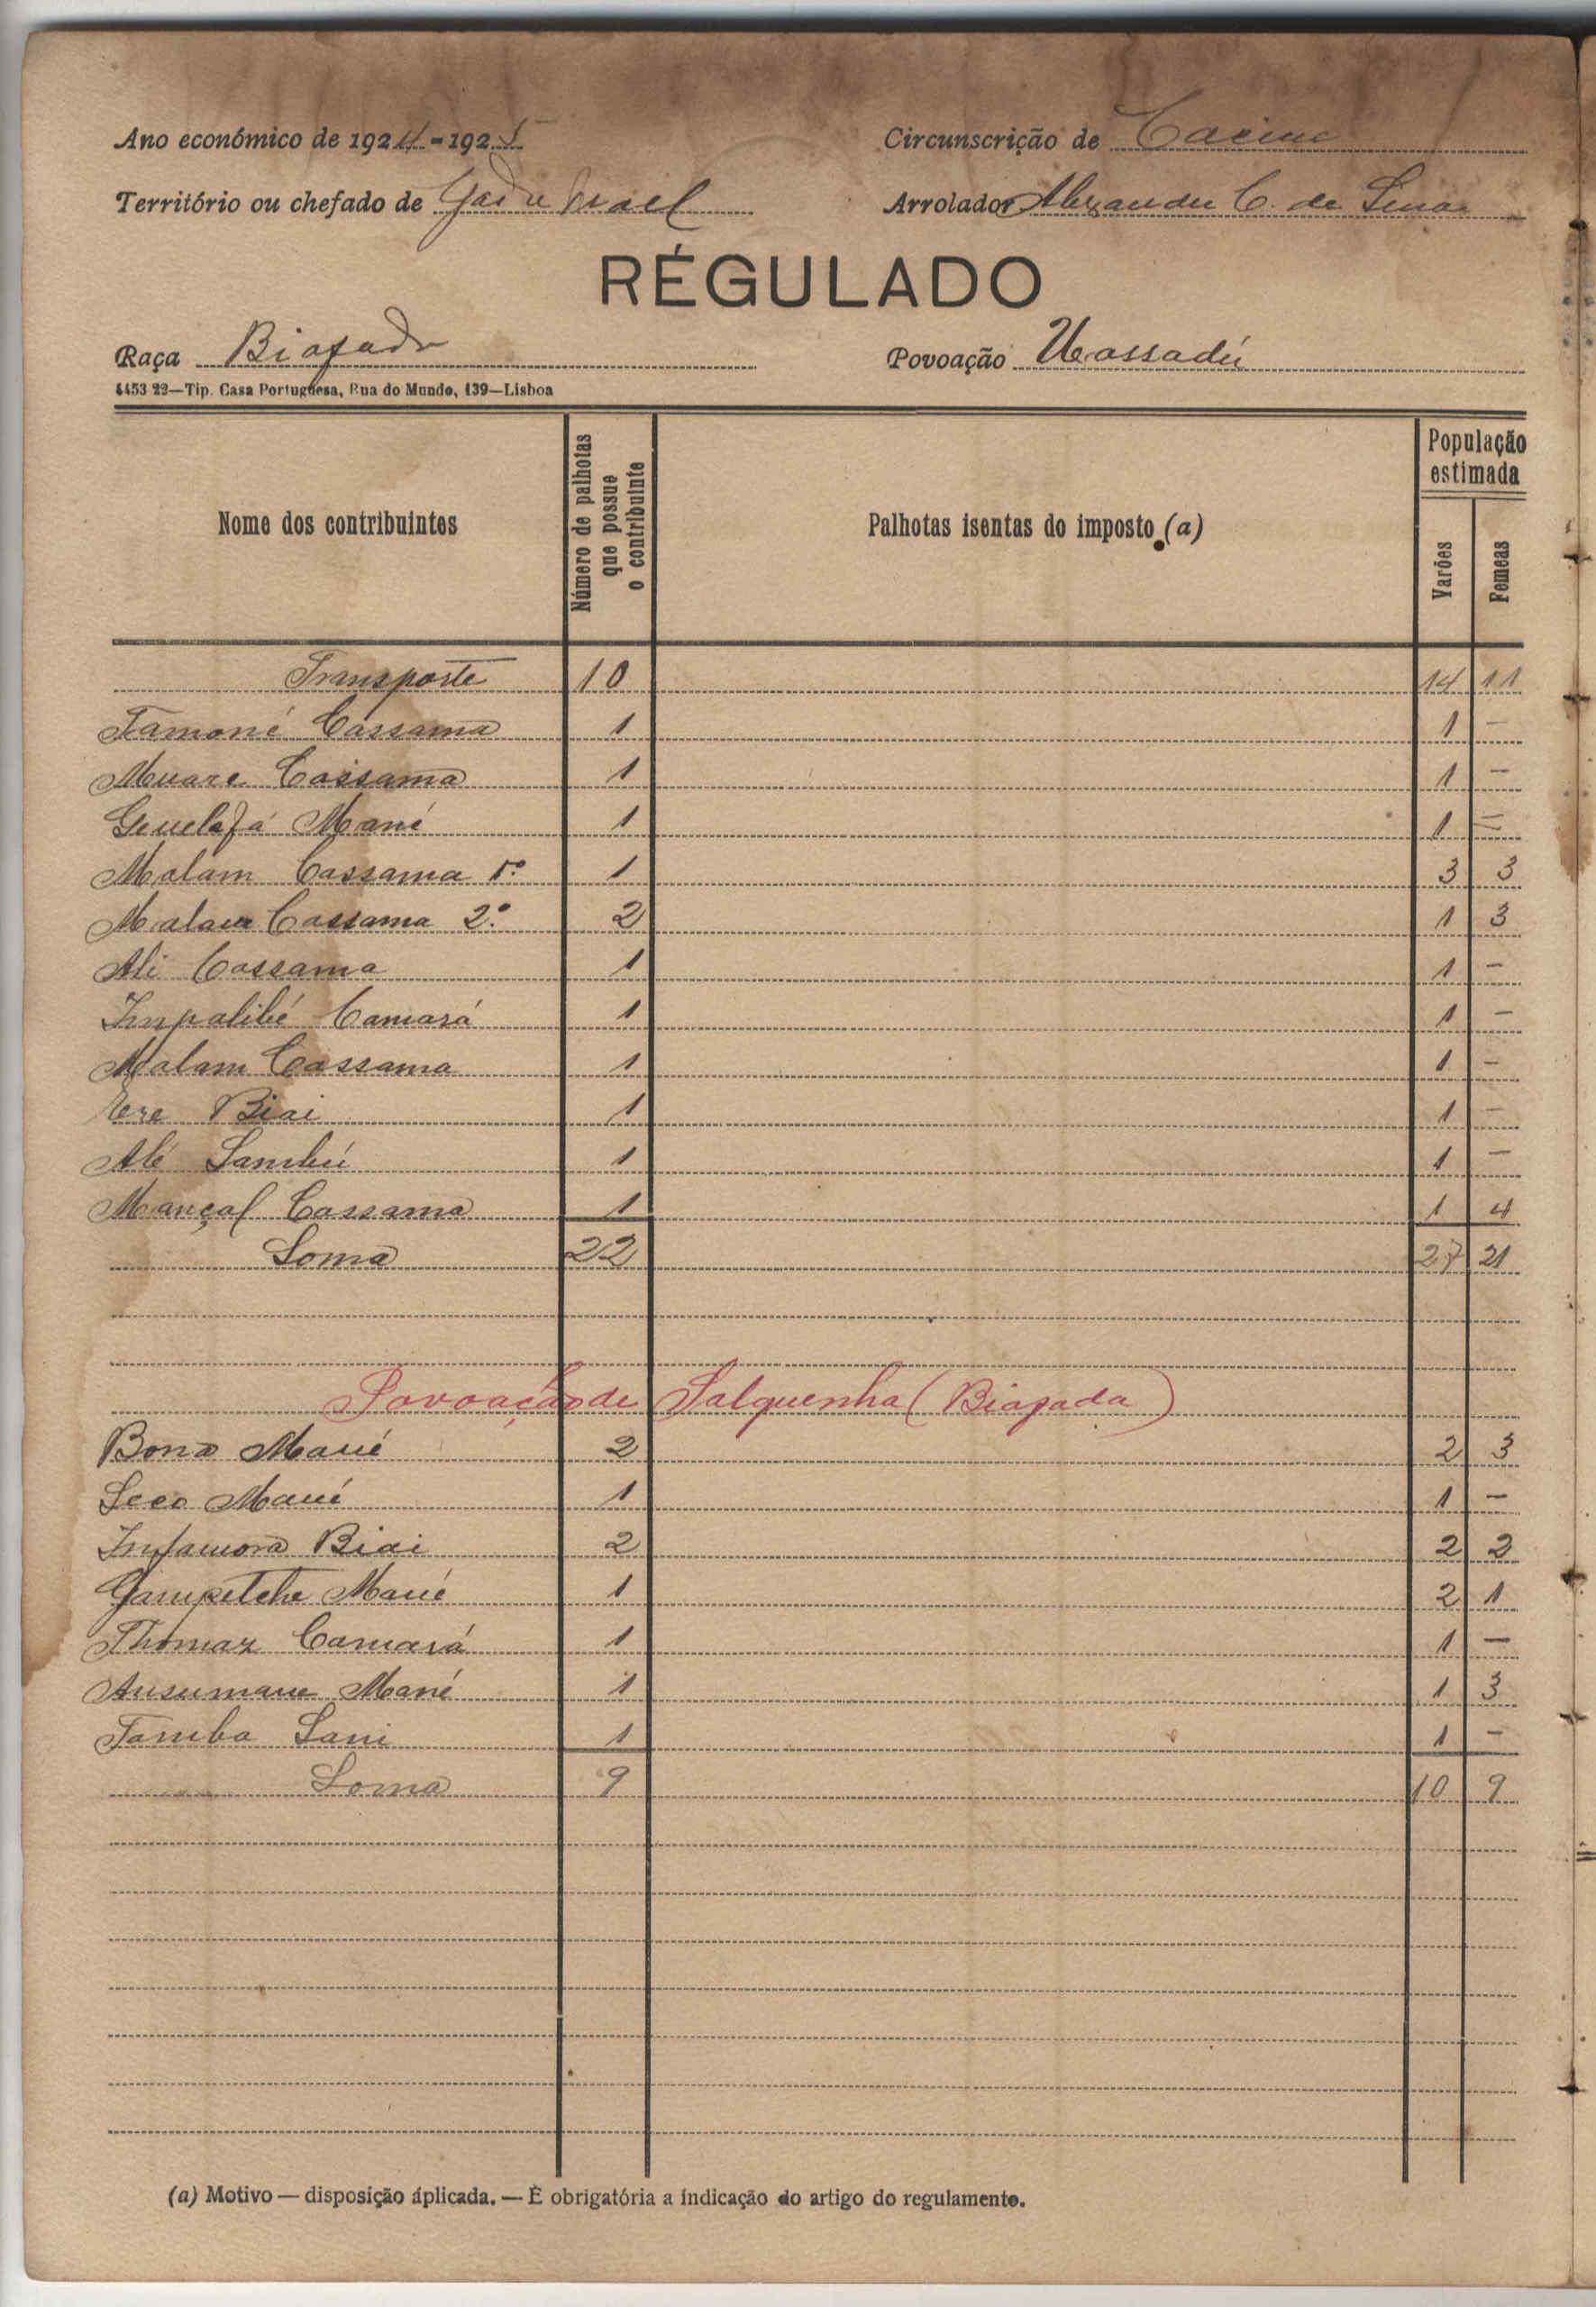 Ano económico de 1924-1925 Circunscrição de Cacine
Território ou chefado de Arrolador Alexandre C. de Sena
RÉGULADO
Raça Biafada Povoação Uassadú
4453 22—Tip. Casa Portuguesa, Rua do Mundo, 139—Lisboa
Nome dos contribuintes Número de palhotas que possue o contribuinte Palhotas isentas do imposto (a) População estimada Varões Femeas
Transporte 10 14 11
Tamoné Cassama 1 1 -
Muare Cassama 1 1 -
Mané 1 1 -
Malam Cassama 1º 1 3 3
Malam Cassama 2º 2 1 3
Ali Cassama 1 1 -
Impalibé Camará 1 1 -
Malam Cassama 1 1 -
Biai 1 1 -
Alé Sambú 1 1 -
Mançal Cassama 1 1 4
Soma 22 27 21
Povoação de Salquenha (Biafada)
Bona Mané 2 2 3
Seco Mané 1 1 -
Infamora Biai 2 2 2
Gampetche Mané 1 2 1
Thomaz Camará 1 1 -
Ansumane Mané 1 1 3
Tamba Sani 1 1 -
Soma 9 10 9
(a) Motivo — disposição áplicada. — É obrigatória a indicação do artigo do regulamento.